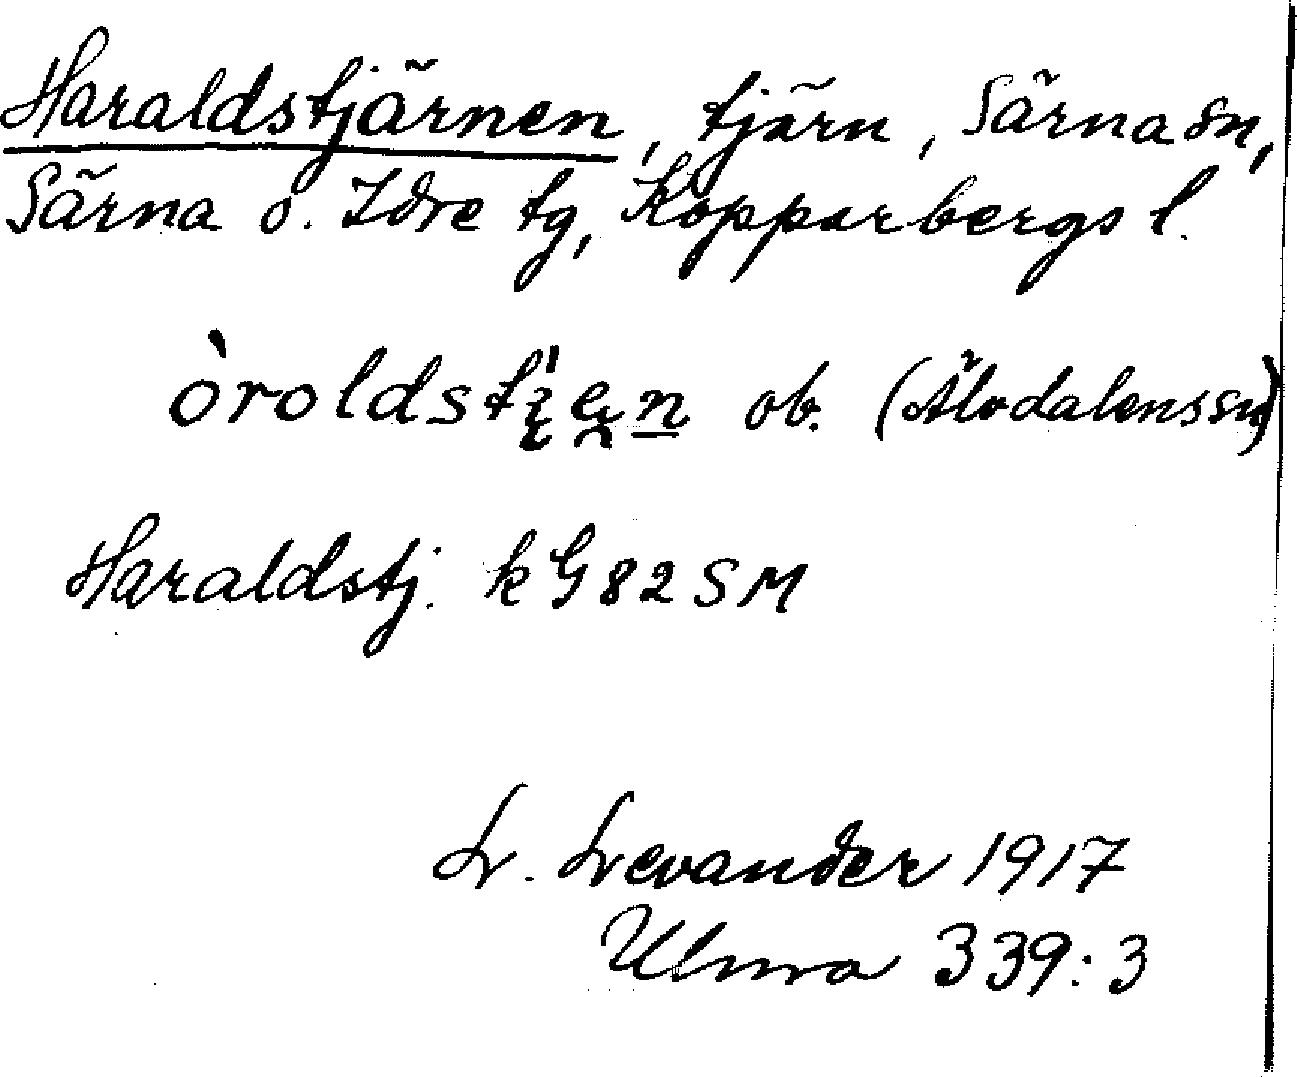 Haraldstjärnen, tjärn, Särna sn,
Särna o. Idre tg, Kopparbergs l.
òroldstį̀ęn ob. (Älvdalenssn)
Haraldstj. kG82SM
L. Levander 1917
Ulma 339:3